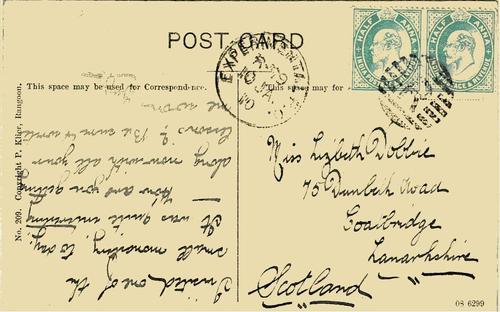 POST CARD
HALF ANNA
INDIA POSTAGE & REVENUE
HALF ANNA
INDIA POSTAGE & REVENUE
EXPERIMENTAL P.O.
This space may be used for Correspondence.
This space may be used for
I visited one of the
small monasteries to day.
It was quite interesting
How are you getting
along now with all your
lessons? Be sure & write
me soon
Miss Lizbeth Dobbie
75 Dunbeth Road
Coatbridge
Lanarkshire
Scotland
No. 209. Copyright P. Klier, Rangoon.
08 6299